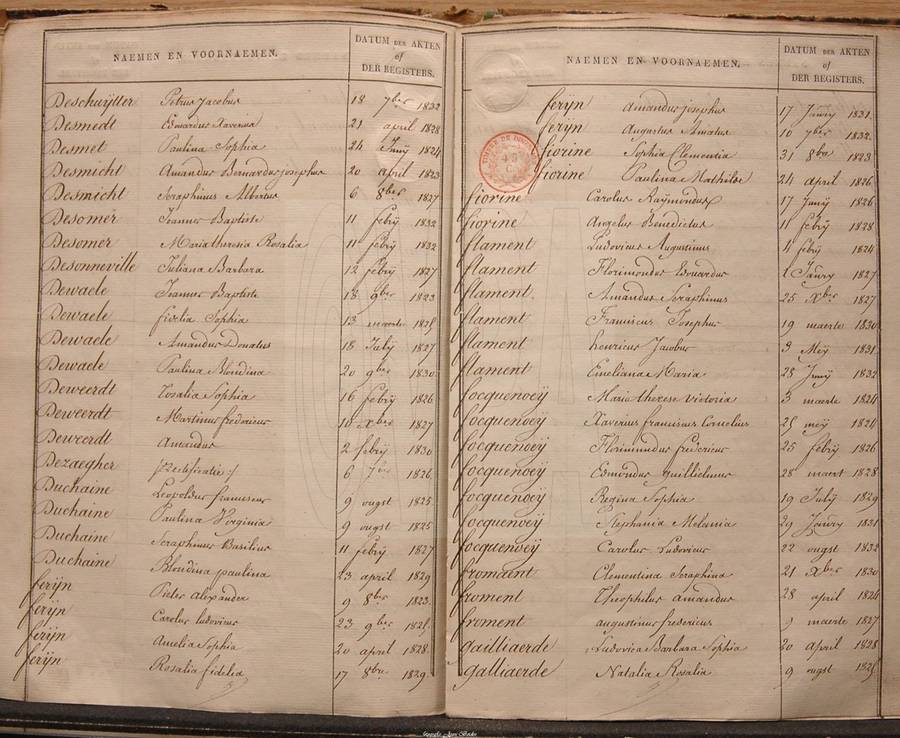 NAEMEN EN VOORNAEMEN. DATUM DER AKTEN
of
DER REGISTERS.
Deschuijtter Petrus Jacobus 18 7ber 1832
Desmedt Eduardus Xaverius 21 april 1828
Desmet Paulina Sophia 24 Junij 1824
Desmicht Amandus Bernardus josephus 20 april 1823
Desmicht Seraphinus Albertus 6 8ber 1827
Desomer Joannes Baptiste 11 febrij 1832
Desomer Maria theresia Rosalia 11 febrij 1832
Desonneville Juliana Barbara 12 febrij 1827
Dewaele Joannes Baptiste 18 9ber 1823
Dewaele fidelia Sophia 13 maerte
Dewaele Amandus Donatus 18 Julij 1827
Dewaele Paulina Blondina 20 9ber 1830
Deweerdt Rosalia Sophia 16 febrij 1826
Deweerdt Martinus frederieus 10 xber 1827
Deweerdt Amandus 2 febrij 1830
Dezaegher 6 1826
Duchaine Leopoldus franciscus 9 ougst 1825
Duchaine Paulina Virginia 9 ougst 1825
Duchaine Seraphinus Basilius 11 febrij 1827
Duchaine Blondina paulina 23 april 1829
ferijn Pieter alexander 9 8ber 1823
ferijn Carolus ludovicus 23 9ber
ferijn Amelia Sophia 20 april 1828
ferijn Rosalia fidelia 17 8bre 1829
NAEMEN EN VOORNAEMEN. DATUM DER AKTEN
of
DER REGISTERS.
ferijn Amandus josephus 17 Janry 1831
ferijn Augustus Amatus 10 7ber 1832
fiorine Sophia Clementia 31 8bre 1823
fiorine Paulina Mathilde 24 april 1826
fiorine Carolus Raijmondus 17 Junij 1826
fiorine Angelus Benedictus 11 febrij 1828
flament Ludovicus Augustinus 11 febrij 1824
flament Florimondus Edouardus 1 Janry 1827
flament Amandus Seraphinus 25 Xber 1827
flament Franciscus Josephus 19 maerte 1830
flament henricus Jacobus 3 Meij 1831
flament Emeliana Maria 28 Junij 1832
focquenoeij Maria therese victoria 3 maerte 1824
focquenoeij Xaverius franciscus Cornelius meij 1824
focquenoeij Florimundus fredericus 25 febrij 1826
focquenoeij Edmondus guillielmus 28 maert 1828
focquenoeij Regina Sophia 19 Julij 1829
focquenoeij Stephania Melania 29 Janry 1831
focquenoeij Carolus Ludovicus 22 ougst 1832
fromaent Clementina Seraphina 21 Xber 1830
froment Theophilus amandus 28 april 1824
froment augustinus fredericus 9 maerte 1827
gailliaerde Ludovica Barbara Sophia 20 april 1828
galliaerde Natalia Rosalia 9 ougst